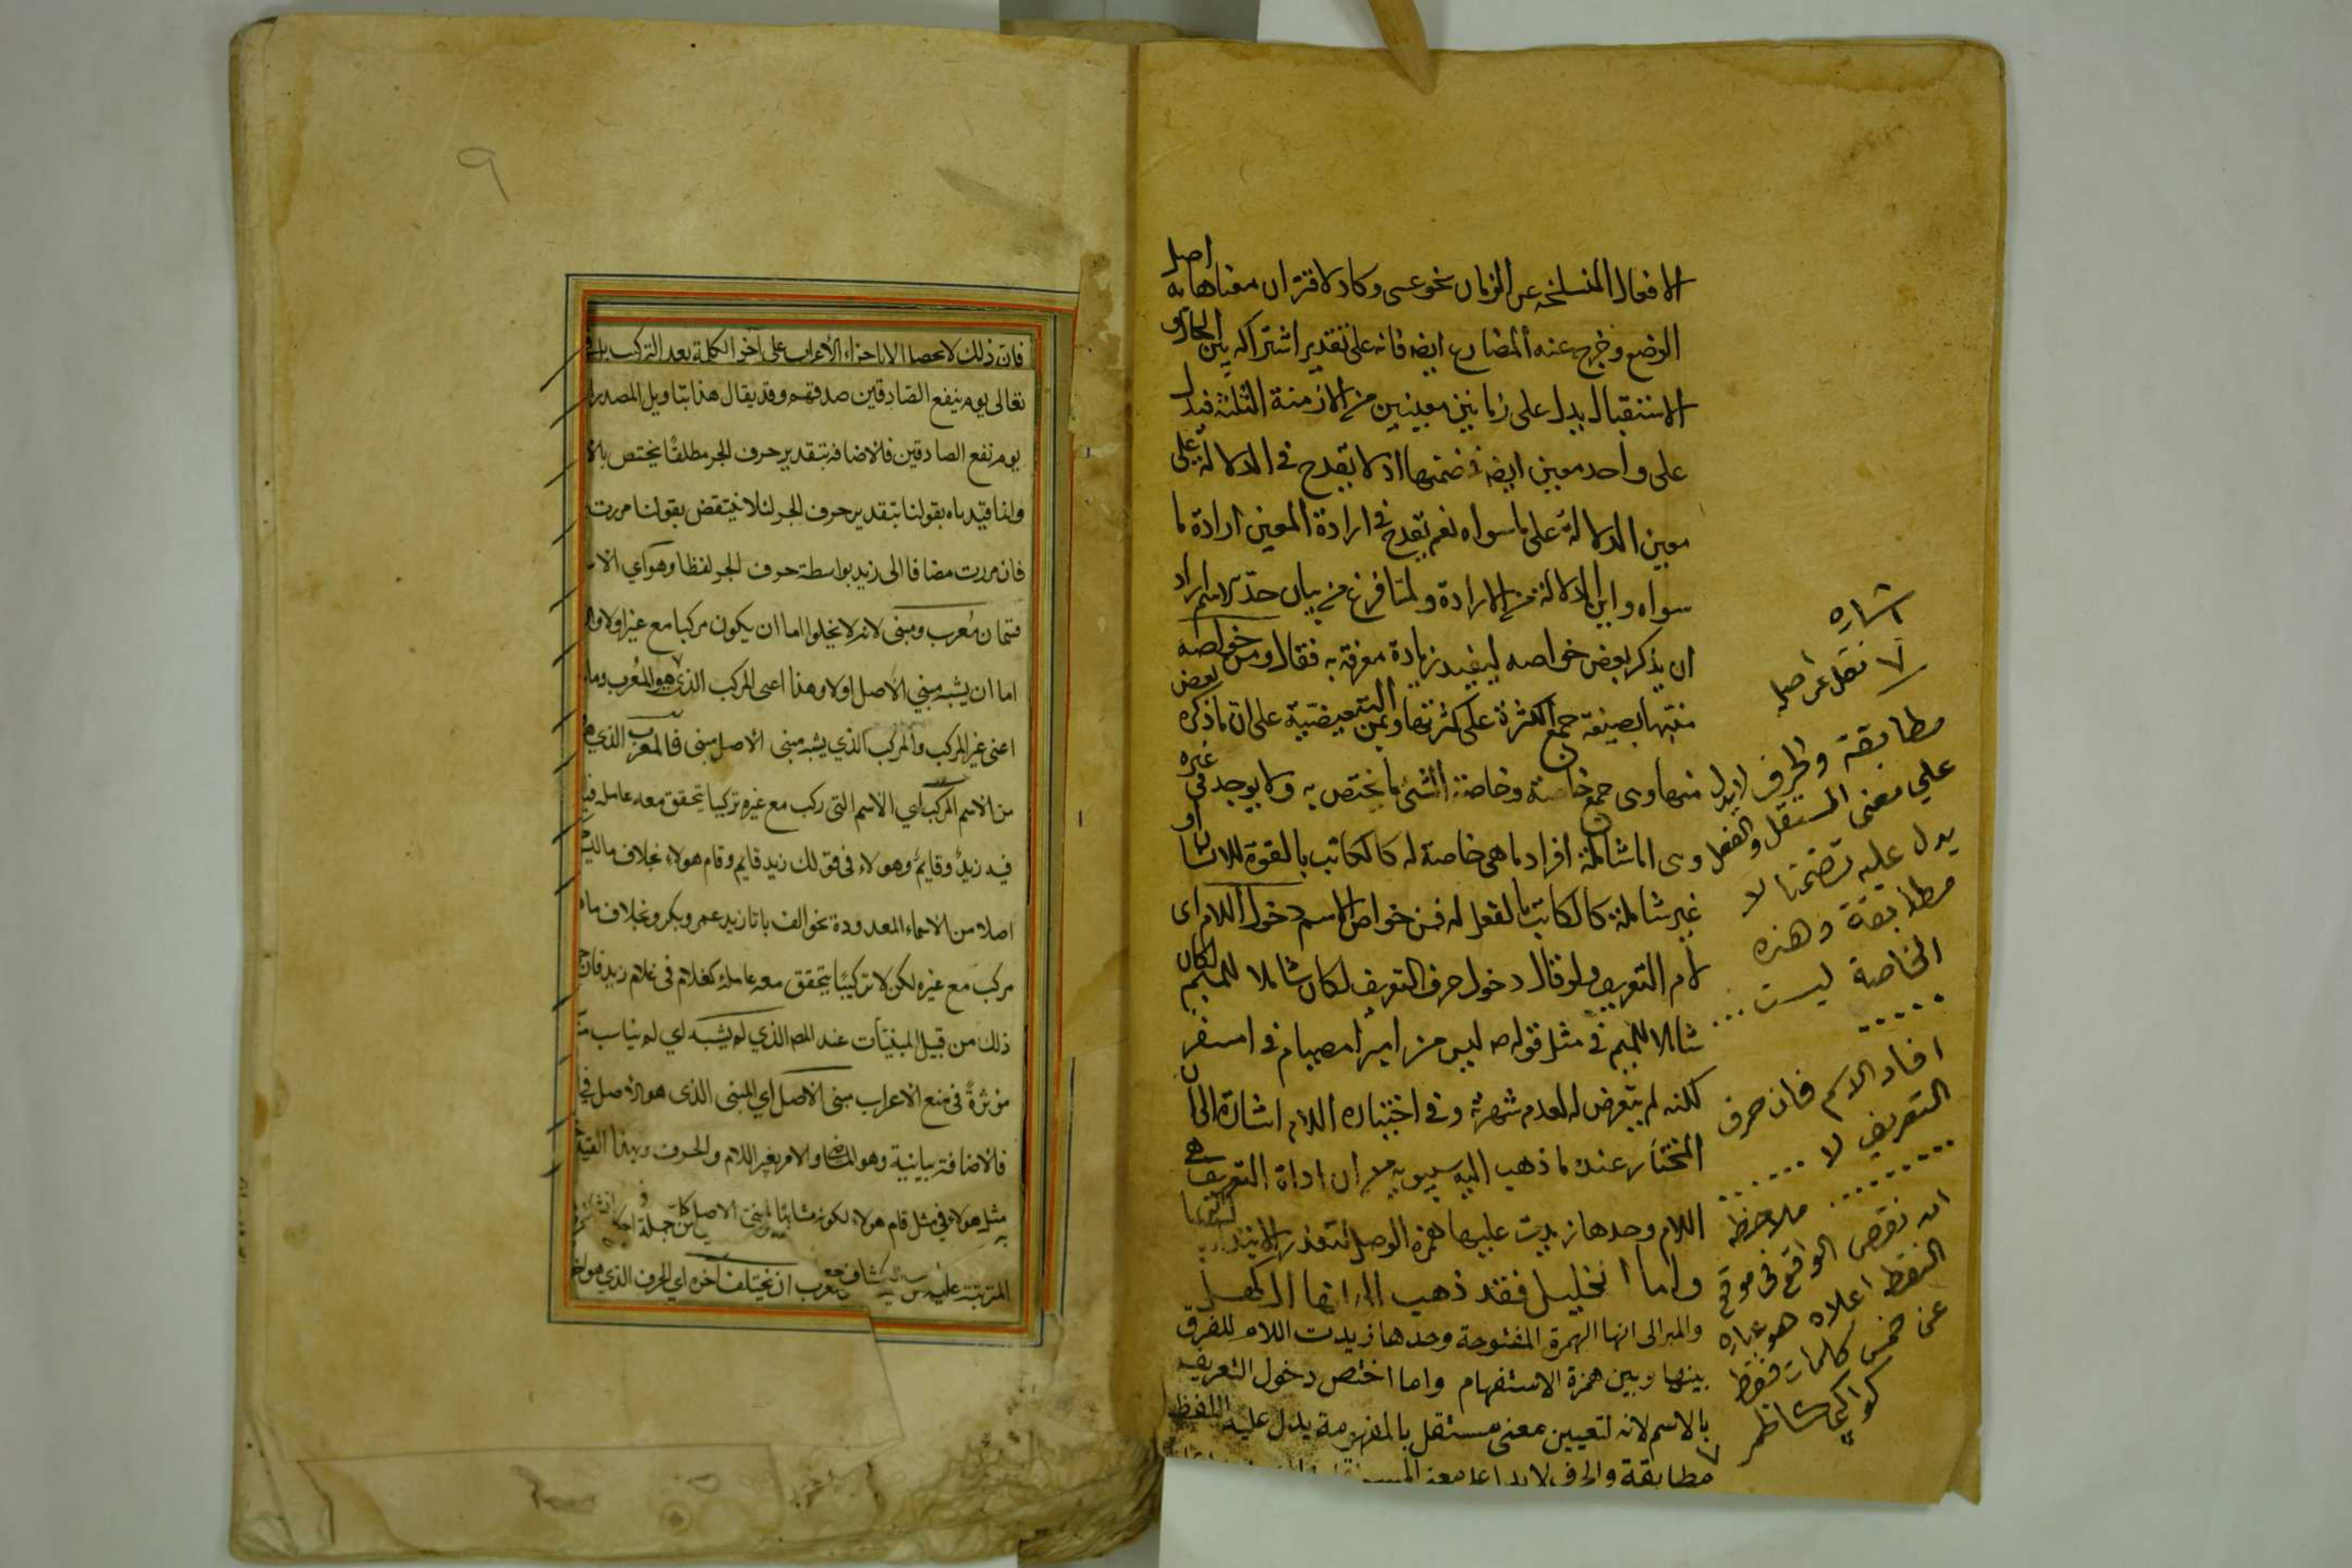 الافعال المنسلخه عن الزمان نحو عسى وكاد لاقتران معناها به اصل
الوضع وخرج عنه المضارع ايضه فانه على تقدير اشتراكه بين الحال و
الاستقبال يدل على زمانين معينين من الازمنة الثلثه فيدل
على واحد معين ايضه في ضمنها اذ لا يقدح في الدلالة على
معين الدلالة على ما سواه نعم يقدح في ارادة المعين ارادة ما
سواه واين الدلالة من الارادة ولما فرغ من بيان حد الاسم اراد
ان يذكر بعض خواصه ليفيد زيادة معرفة به فقال ومن خواصه
منبها بصيغة جمع الكثرة على كثرتها وبمن التبعيضية على ان ما ذكره بعض
منها وهى جمع خاصة وخاصة الشئ ما يختص به ولا يوجد في غيره
وهى اما شاملة افراد ما هى خاصة له كالكاتب بالقوة للانسان او
غير شاملة كالكاتب بالفعل له فمن خواص الاسم دخول اللام اى
لام التعريف ولو قال دخول حرف التعريف لكان شاملا للميم لكان
شاملا للميم في مثل قوله ص ليس من امبر امصيام في امسفر
لكنه لم يتعرض له لعدم شهرته وفي اختياره اللام اشارة الى ان
المختار عنده ما ذهب اليه سيبويه من ان اداة التعريف هى
اللام وحدها زيدت عليها همزة الوصل لتعذر الابتداء
واما الخليل فقد ذهب الى انها ال كهل
والمبر الى انها الهمزة المفتوحة وحدها زيدت اللام للفرق
بينها وبين همزة الاستفهام واما اختص دخول التعريف
بالاسم لانه لتعيين معنى مستقل بالمفهومة يدل عليه اللفظ
مطابقة والحرف لا يدل على معنى
اشاره
لا نقل عن اصل
مطابقة والحرف لا يدل
على معنى المستقل والفعل
يدل عليه تضمنا لا
مطابقة وهذه
الخاصة ليست ...
....
افاد الاسم فان حرف
التعريف لا ......
........
ملاحظه
ان نقص الواقع في موقع
النقط اعلاه هو عباره
عن خمس كلمات فقط
۹
فان ذلك لا يحصل الا باجراء الاعراب على آخر الكلمة بعد التركيب
تعالى يوم ينفع الصادقين صدقهم وقد يقال هذا بتاويل المصدر
يوم نفع الصادقين فالاضافة بتقدير حرف الجر مطلقا يختص بالا
وانما قيدناه بقولنا بتقدير حرف الجر لئلا ينتقض بقولنا مررت
فان مررت مضاف الى زيد بواسطة حرف الجر لفظا وهو اي الا
قسمان معرب ومبنى لانه لا يخلوا اما ان يكون مركبا مع غيره اولا وال
اما ان يشبه مبني الاصل اولا وهذا اعنى المركب الذى هو المعرب وما
اعنى غير المركب والمركب الذي يشبه مبنى الاصل مبنى فالمعرب الذي
من الاسم المركب اي الاسم التى ركب مع غيره تركيبا يتحقق معه عامله
فيه زيد وقايم وهولاء في قولك زيد قايم وقام هولاء بخلاف ما ليس
اصلا من الاسماء المعدودة نحو الف با تا زيد عمرو بكر وبخلاف ما
مركب مع غيره لكن لا تركيبا يتحقق معه عامله كغلام في غلام زيد فان
ذلك من قبيل المبنيات عند المص الذي لم يشبه اي لم يناسب
مؤثرة في منع الاعراب مبنى الاصل اي المبنى الذى هو الاصل في
فالاضافة بيانية وهو الماضى والامر بغير اللام والحرف وبهذا القيد
مثل هولاء في مثل قام هولاء لكونه مشابها لمبنى الاصل
المترتبة عليه ان يختلف آخره اي الحرف الذي هو